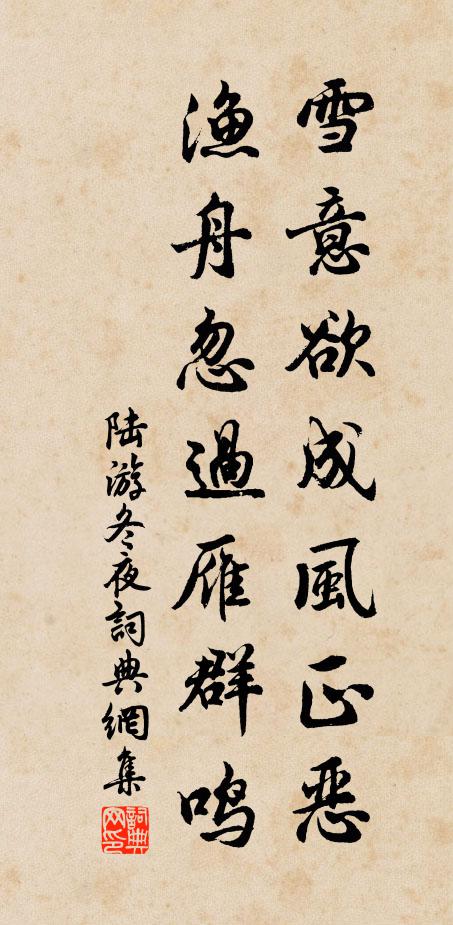 雪意欲成風正恶
渔舟忽過雁群鸣
陆游冬夜詞典網集
詞典网印